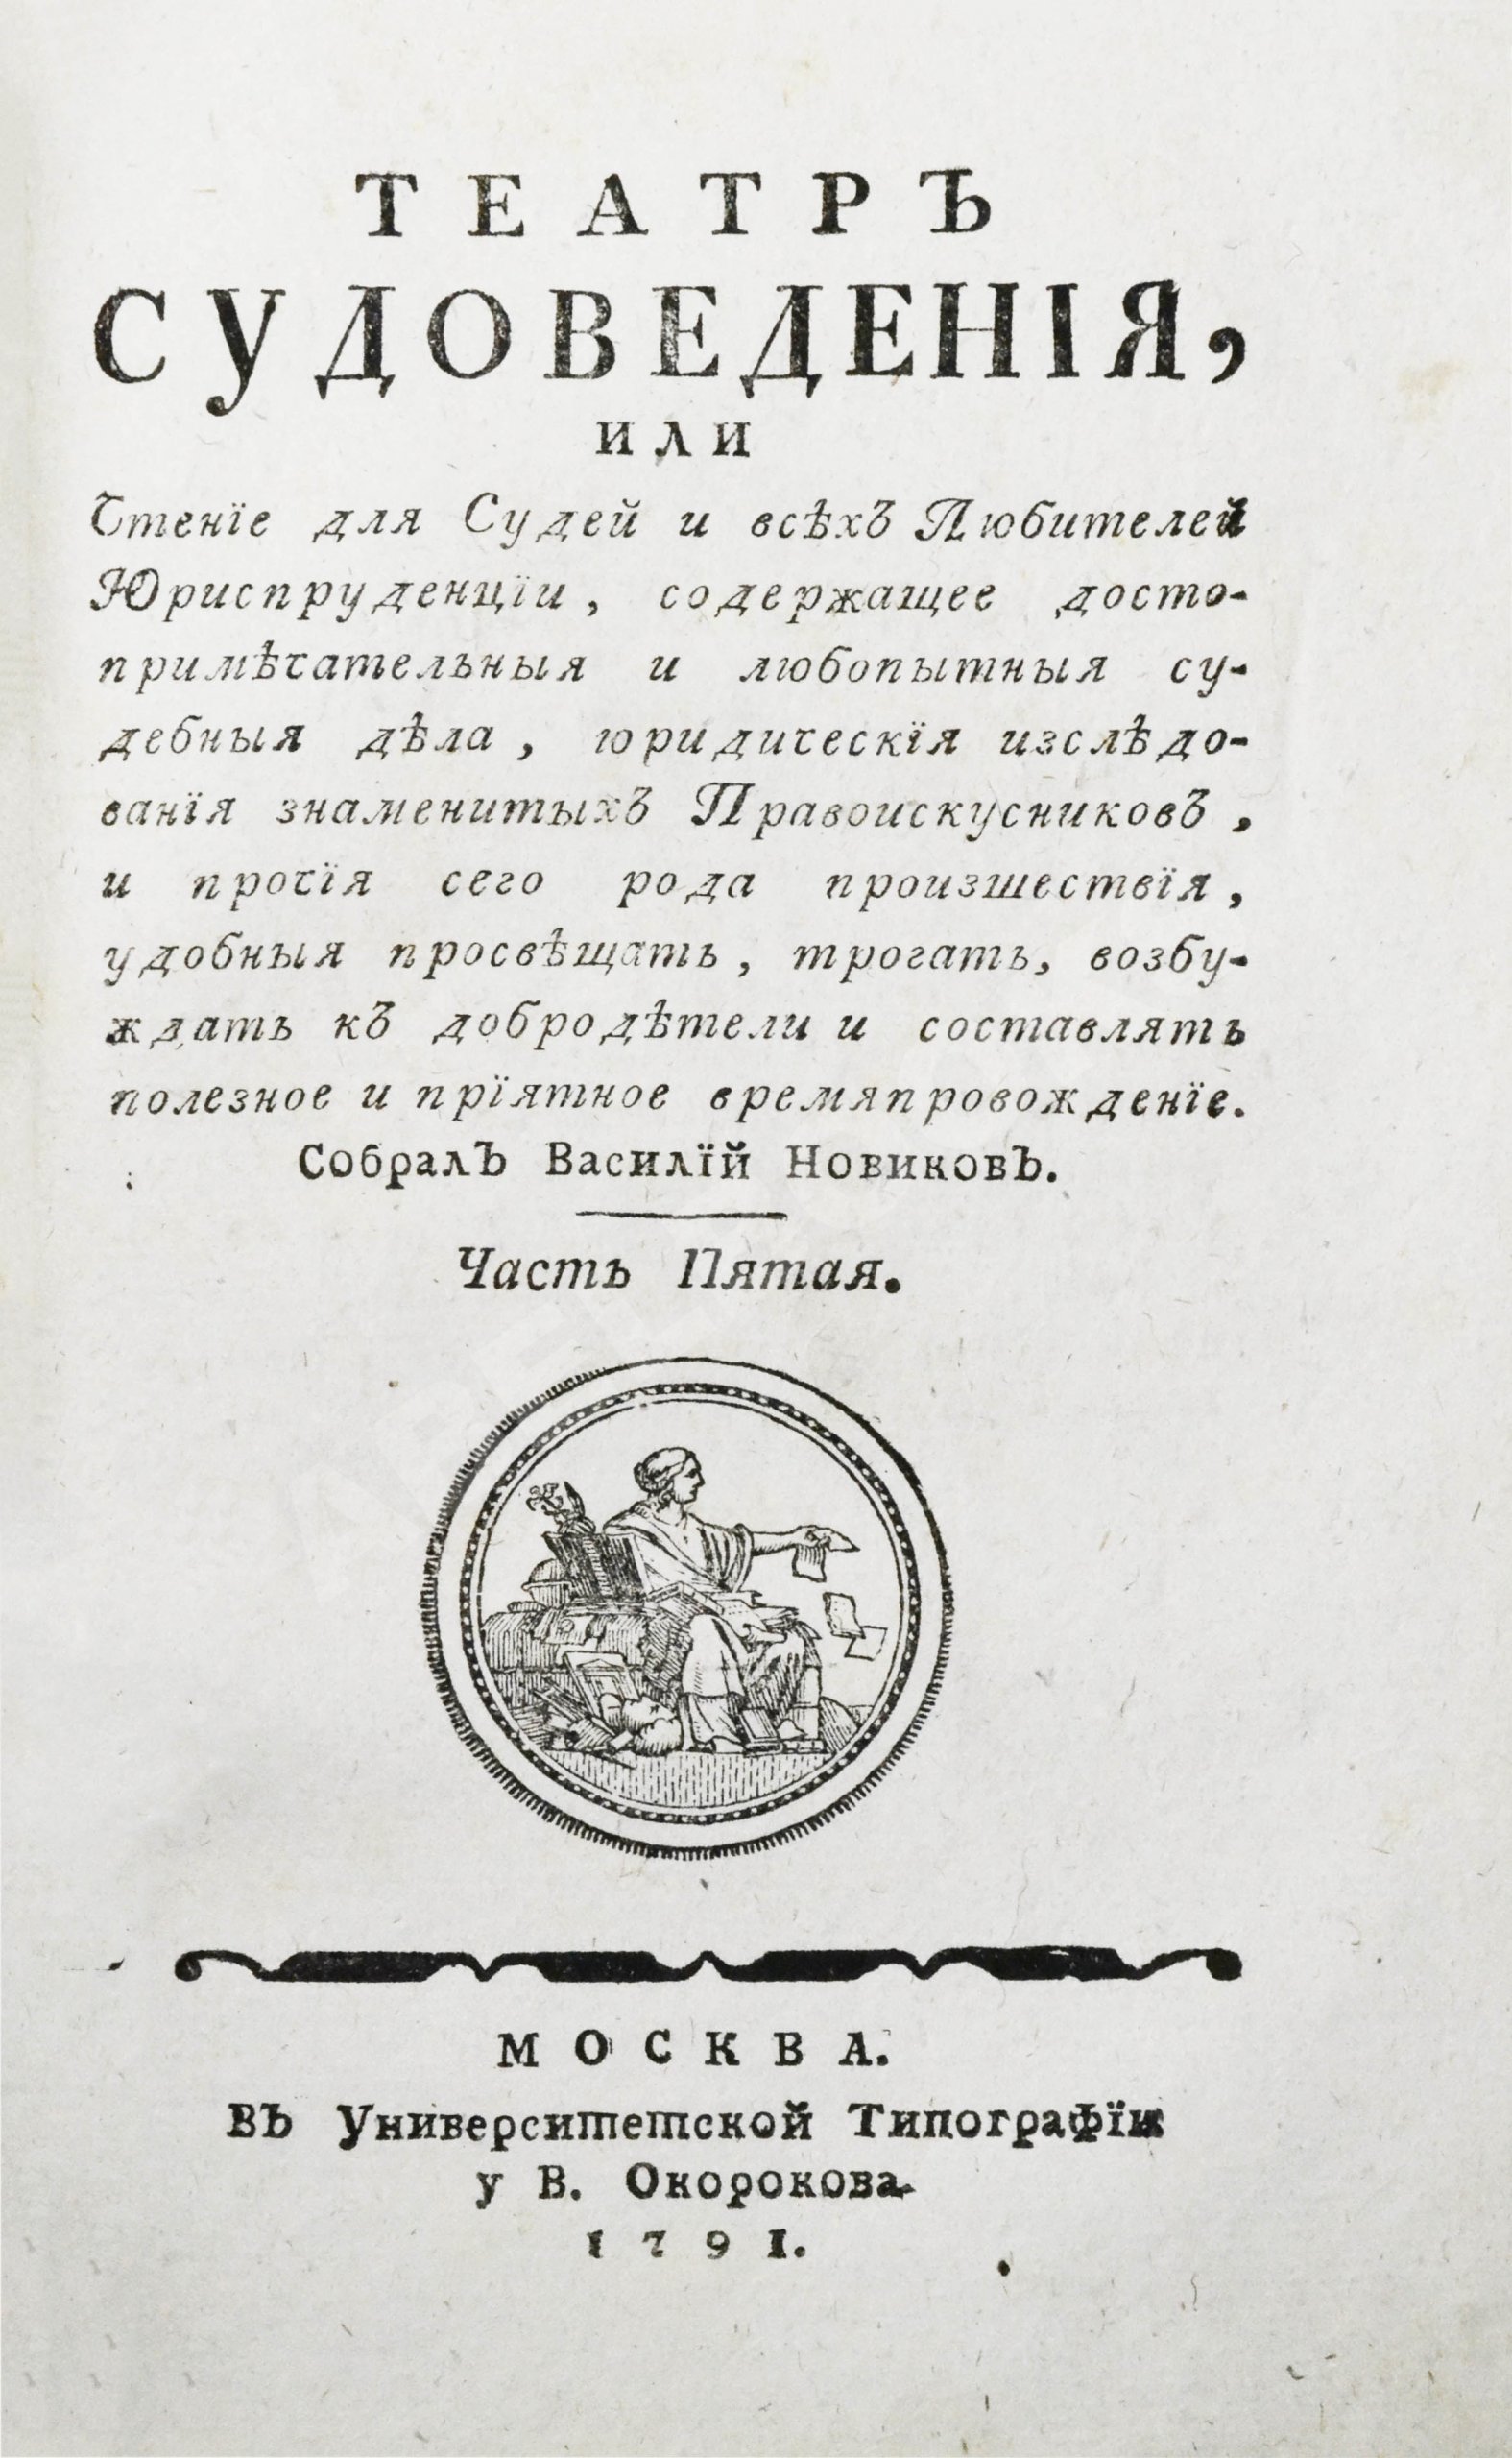 ТЕАТРЪ
СУДОВЕДЕНІЯ,
ИЛИ
Чтенїе для Судей и всѣхъ Любителей
Юриспруденцїи, содержащее досто-
примѣчательныя и любопытныя су-
дебныя дѣла, юридическїя изслѣдо-
ванїя знаменитыхъ Правоискусниковъ,
и прочїя сего рода произшествїя,
удобныя просвѣщать, трогать, возбу-
ждать къ добродѣтели и составлять
полезное и прїятное времяпровожденїе.
Собралъ Василїй Новиковъ.
Часть Пятая.
МОСКВА.
Въ Университетской Типографїи
у В. Окорокова
1791.